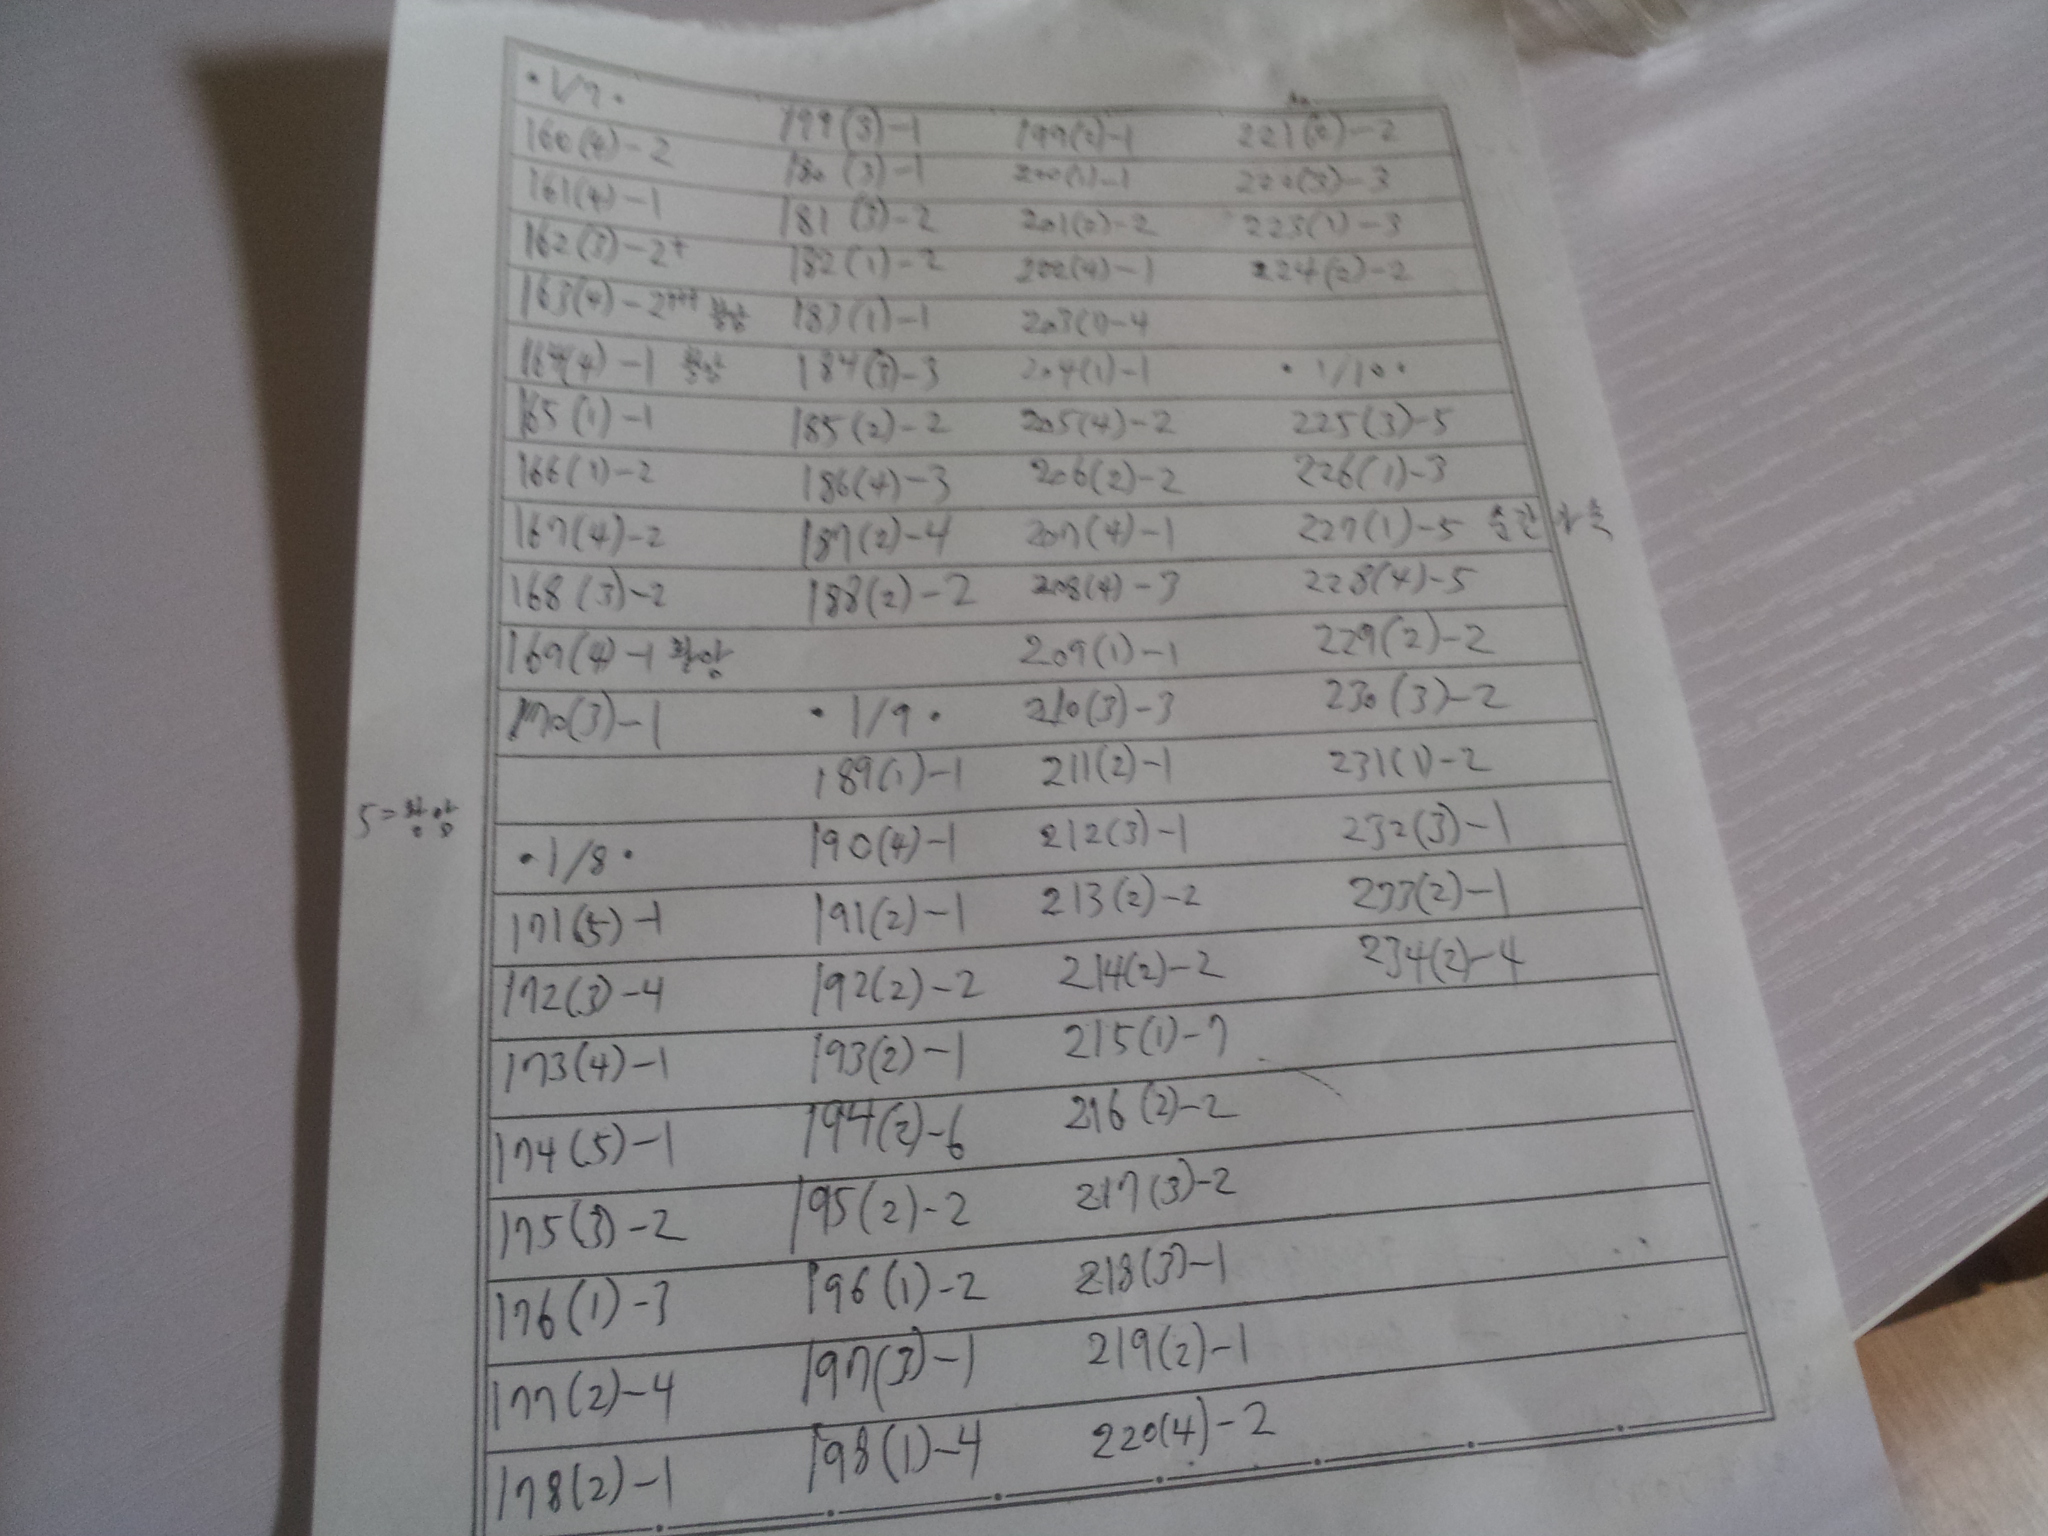 · 1/7 ·
160(4)-2
161(4)-1
162(3)-2+
163(4)-2+++ 황당
164(4)-1 황당
165(1)-1
166(1)-2
167(4)-2
168(3)-2
169(4)-1 황당
170(3)-1
5=황당
· 1/8 ·
171(5)-1
172(3)-4
173(4)-1
174(5)-1
175(3)-2
176(1)-3
177(2)-4
178(2)-1
199(3)-1
180(3)-1
181(3)-2
182(1)-2
183(1)-1
184(3)-3
185(2)-2
186(4)-3
187(2)-4
188(2)-2
· 1/9 ·
189(1)-1
190(4)-1
191(2)-1
192(2)-2
193(2)-1
194(2)-6
195(2)-2
196(1)-2
197(3)-1
198(1)-4
199(2)-1
200(1)-1
201(2)-2
202(4)-1
203(1)-4
204(1)-1
205(4)-2
206(2)-2
207(4)-1
208(4)-3
209(1)-1
210(3)-3
211(2)-1
212(3)-1
213(2)-2
214(2)-2
215(1)-7
216(2)-2
217(3)-2
218(3)-1
219(2)-1
220(4)-2
221(2)-2
222(3)-3
223(1)-3
224(2)-2
· 1/10 ·
225(3)-5
226(1)-3
227(1)-5
228(4)-5
229(2)-2
230(3)-2
231(1)-2
232(3)-1
233(2)-1
234(2)-4